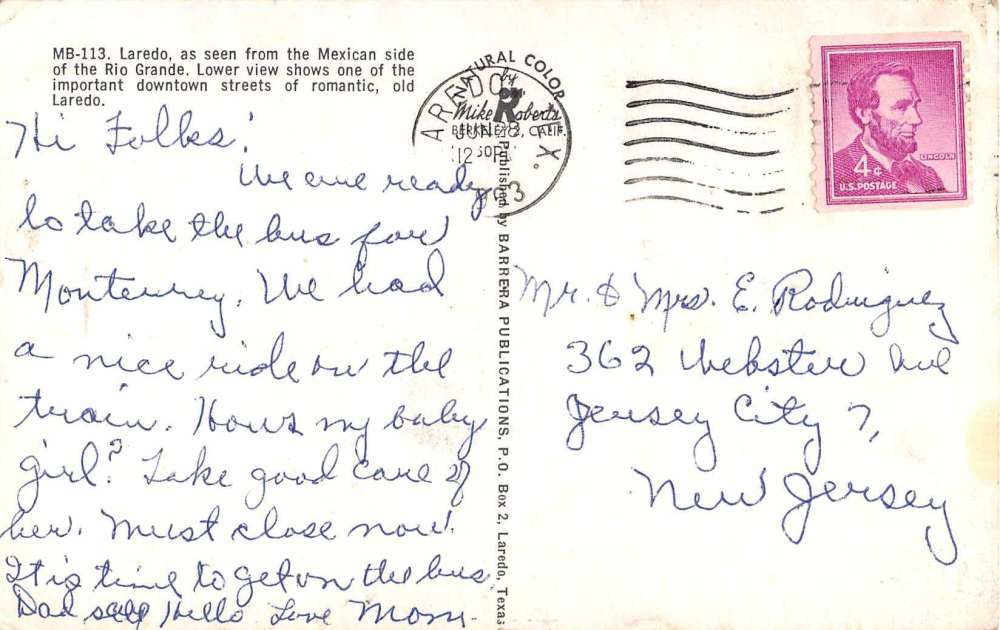 MB-113. Laredo, as seen from the Mexican side
of the Rio Grande. Lower view shows one of the
important downtown streets of romantic, old
Laredo.
Hi Folks!
We are ready
to take the bus for
Monterrey. We had
a nice ride on the
train. Hows my baby
girl? Take good care of
her. Must close now.
It is time to get on the bus.
Dad says Hello Love Mom.
NATURAL COLOR
by
Mike Roberts
BERKELEY 2, CALIF.
LAREDO, TEX.
Published by BARRERA PUBLICATIONS, P.O. Box 2, Laredo, Texas
LINCOLN
4¢
U.S. POSTAGE
Mr. & Mrs. E. Rodriguez
362 Webster Ave
Jersey City 7,
New Jersey